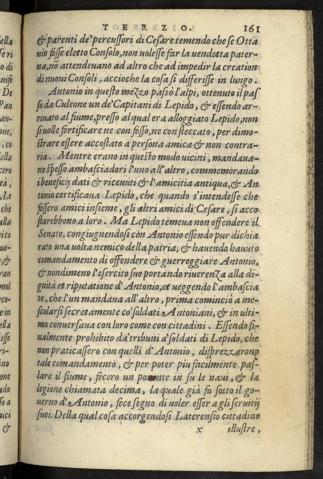 TO E R Z E Z I O. 161
& parenti de' percussori di Cesare temendo che se Otta
uio fosse eletto Consolo, non uolesse far la uendetta pater-
na, nõ attendeuano ad altro che ad impedir la creation
di nuoui Consoli, accioche la cosa si differisse in lungo.
Antonio in questo mezzo passò l'alpi, ottenuto il pas
so da Culeone un de' Capitani di Lepido, & essendo ar-
riuato al fiume, presso al qual era alloggiato Lepido, non
si uolle fortificare ne con fosso, ne con steccato, per dimo-
strare essere accostato a persona amica & non contra-
ria. Mentre erano in questo modo uicini, mandaua-
no spesso ambasciadori l'uno all'altro, commemorando
i benefici dati & riceuuti & l'amicitia antiqua, & An
tonio certificaua Lepido, che quando s'intendesse che
fossero amici insieme, gli altri amici di Cesare, si acco
starebbono a loro. Ma Lepido temeua non offendere il
Senato, congiugnendosi cõn Antonio essendo pur dichia
rato una uolta nemico della patria, & hauendo hauuto
comandamento di offendere & guerreggiare Antonio,
& nondimeno l'esercito suo portando riuerenza alla di-
gnità et riputatione d'Antonio, et ueggendo l'ambascia
te, che l'un mandaua all'altro, prima cominciò a me-
scolarsi secretamente co'soldati Antoniani, & in ulti-
mo conuersaua con loro come con cittadini. Essendo fi-
nalmente prohibito da'tribuni a'soldati di Lepido, che
non praticassero con quelli d'Antonio, disprezzarono
tale comandamento, & per poter piu facilmente pas-
sare il fiume, fecero un ponente in su le naui, & la
legione chiamata decima, la quale già fu sotto il go-
uerno d'Antonio, fece segno di uoler esser a gli seruitij
suoi. Della qual cosa accorgendosi Laterensio cittadino
x illustre,